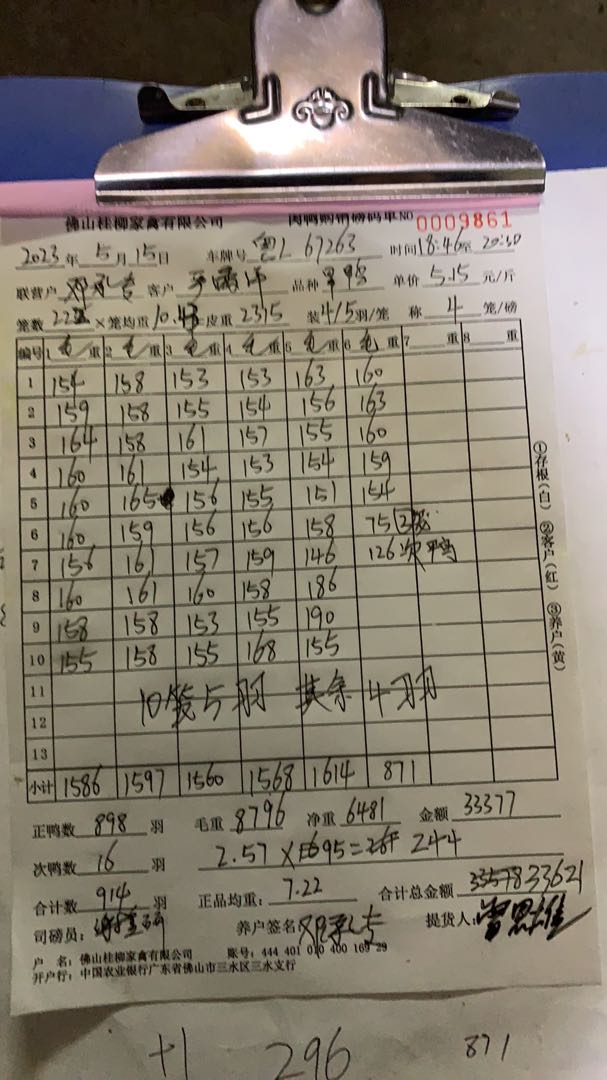 佛山桂柳家禽有限公司 肉鸭购销磅码单 NO 0009861
2023年5月15日 车牌号 粤L 67263 时间18:46至20:30
联营户 邓 客户 品种 单价 5.15 元/斤
笼数 22 × 笼均重 10.43 皮重 2315 装4/5羽/笼 称 4 笼/磅
编号 1 毛重 2 毛重 3 毛重 4 毛重 5 毛重 6 毛重 7 重 8 重
1 154 158 153 153 163 160
2 159 158 155 154 156 163
3 164 158 161 157 155 160
4 160 161 154 153 154 159
5 160 165 156 155 151 154
6 160 159 156 156 158 75 (2笼)
7 156 161 157 159 146 126 次鸭
8 160 161 160 158 186
9 158 158 153 155 190
10 155 158 155 168 155
11 10笼5羽 其余4羽
12
13
小计 1586 1597 1560 1568 1614 871
①存根(白) ②客户(红) ③养户(黄)
正鸭数 898 羽 毛重 8796 净重 6481 金额 33377
次鸭数 16 羽 2.57 × 95 = 244
合计数 914 羽 正品均重: 7.22 合计总金额 33621
司磅员: 养户签名: 邓 提货人: 曾思雄
户 名: 佛山桂柳家禽有限公司 账号: 444 401 010 400 169 29
开户行: 中国农业银行广东省佛山市三水区三水支行
+1 296 871